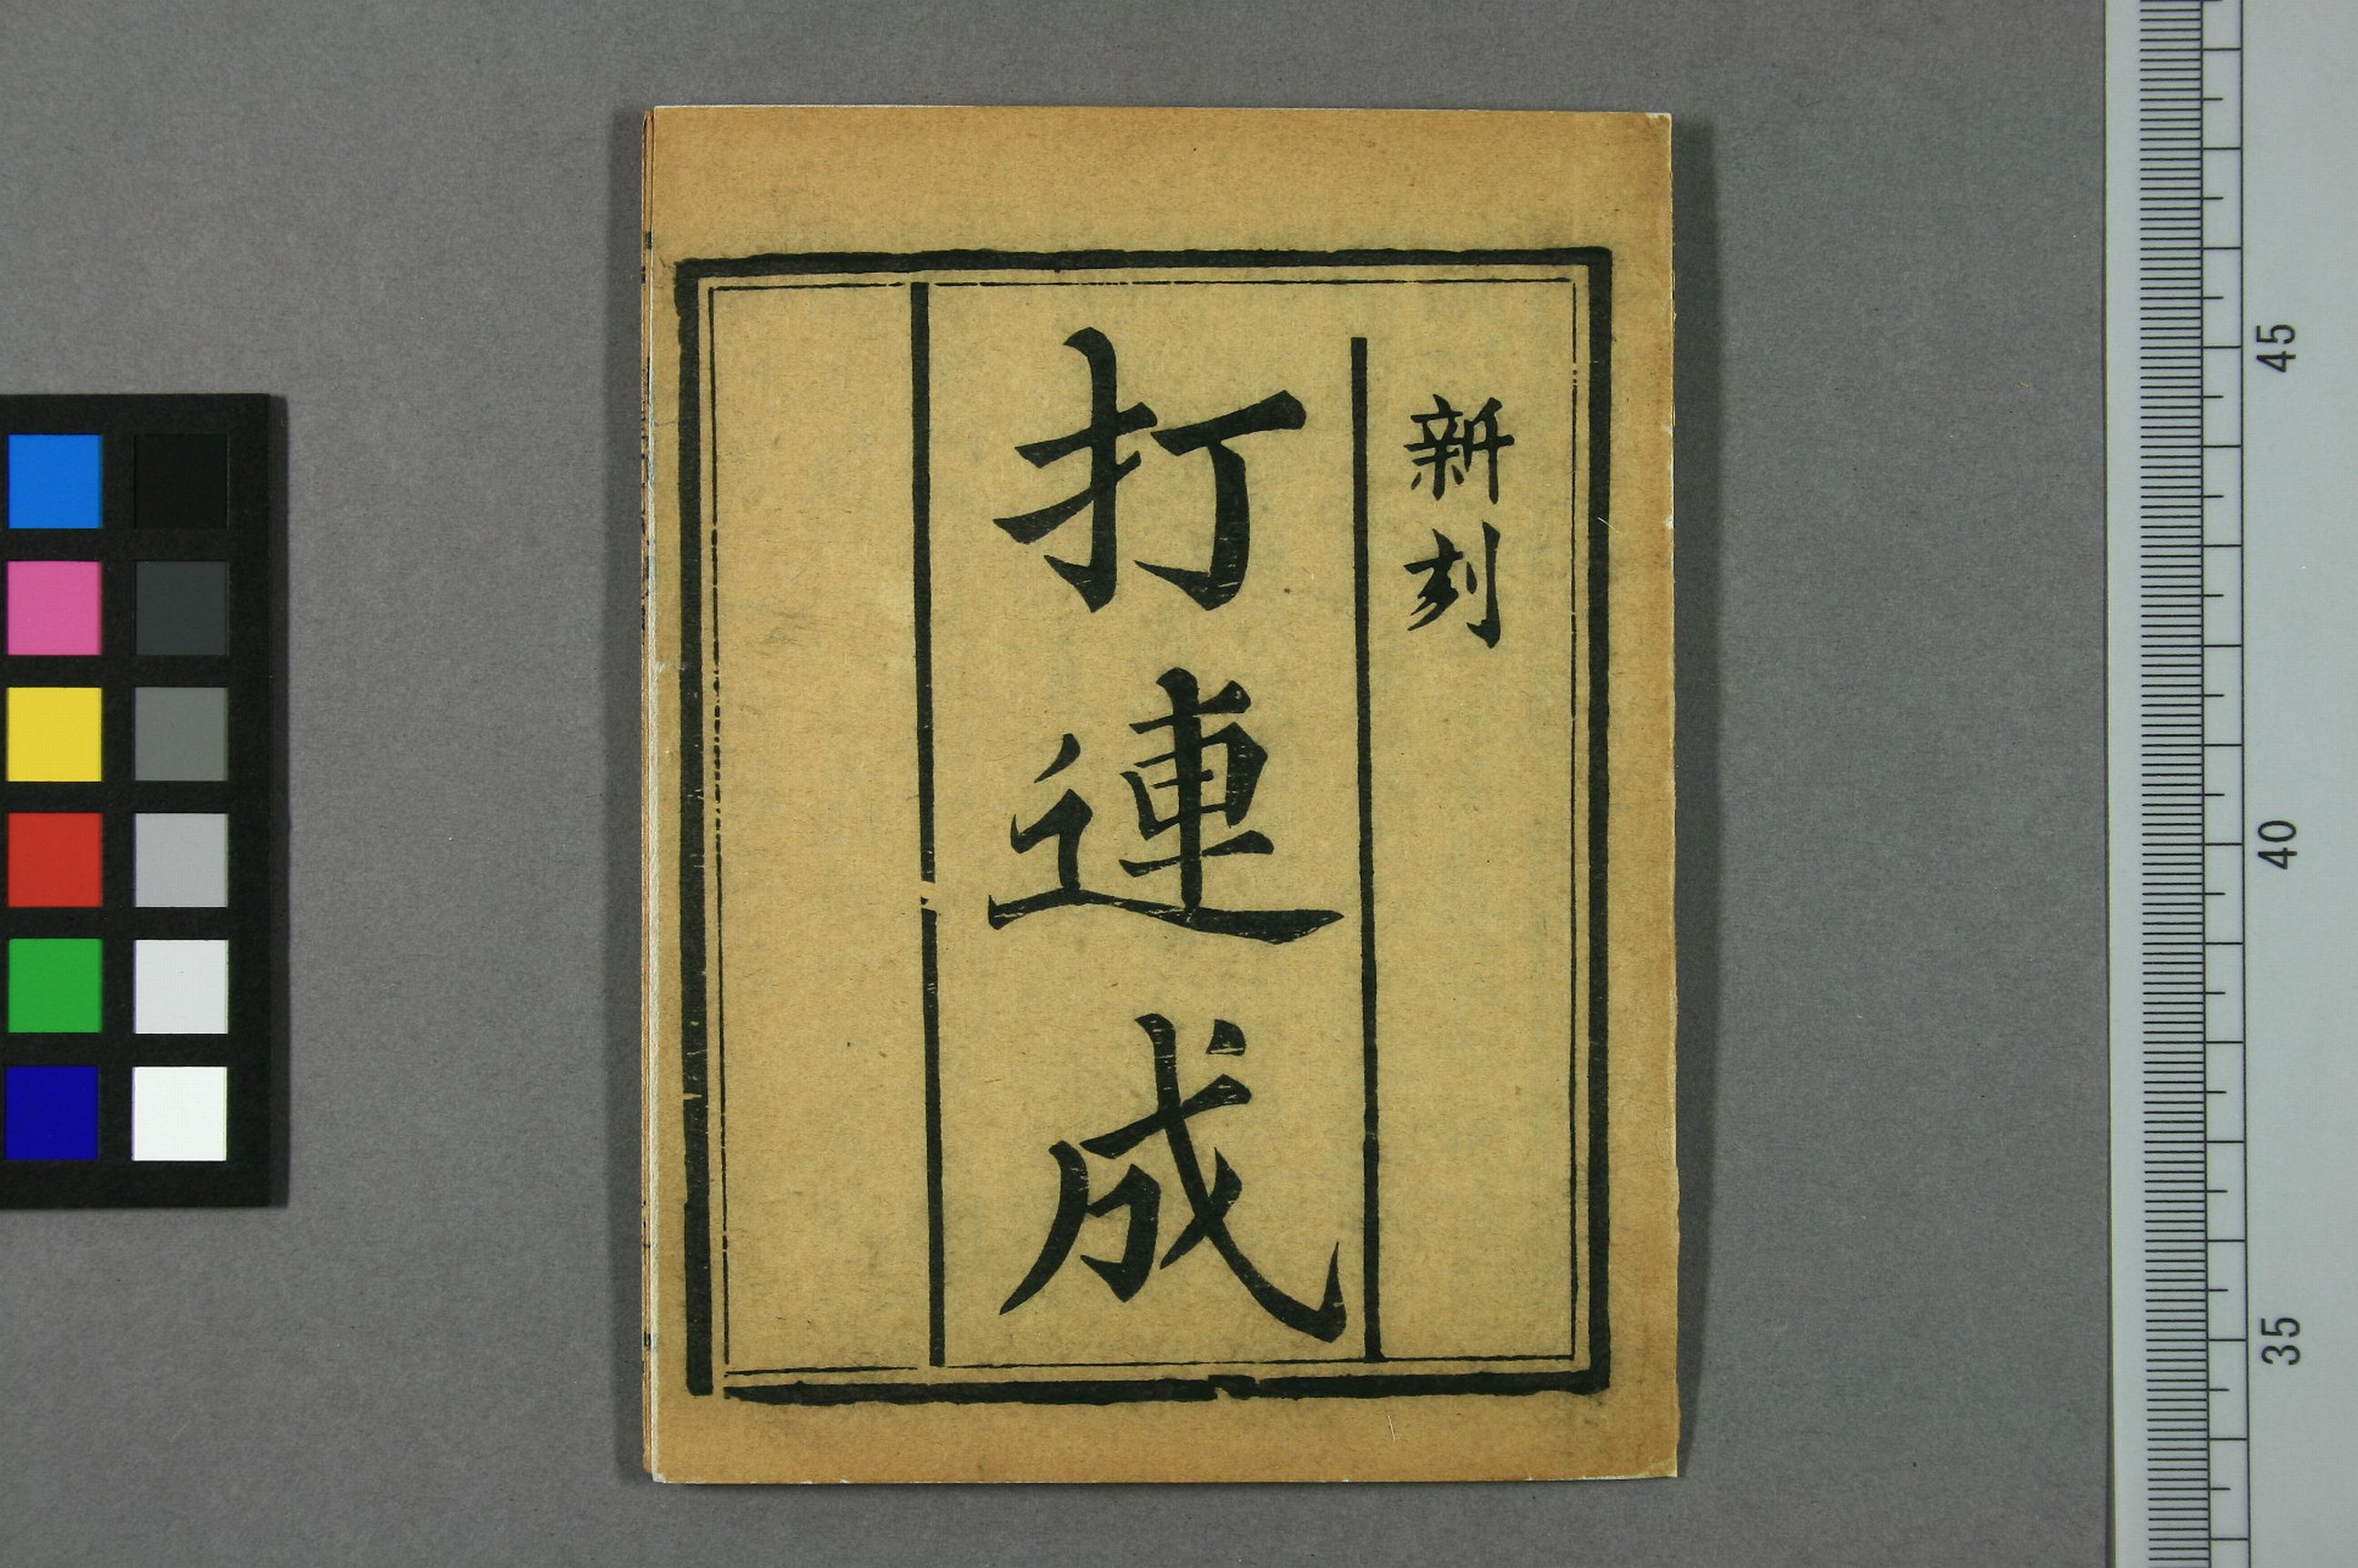 新刻
打連成
45
40
35